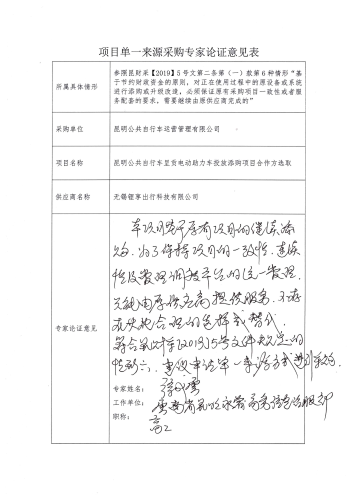 项目单一来源采购专家论证意见表
所属具体情形
参照昆财采【2019】5号文第二条第（一）款第6种情形“基
于节约财政资金的原则，对正在使用过程中的源设备或系统
进行添购或升级改造，必须保证原有采购项目一致性或者服
务配套的要求，需要继续由原供应商完成的”
采购单位
昆明公共自行车运营管理有限公司
项目名称
昆明公共自行车呈贡电动助力车投放添购项目合作方选取
供应商名称
无锡钜享出行科技有限公司
专家论证意见
本项目属于原有项目的继续添
为了保持项目的一致性、连续
性及管理调度平台的统一管理，
只能由原供应商提供服务，不存
在其他合理的选择或替代，
符合昆财采(2019)5号文件规定的
建议单一来源方式进行采购
专家姓名：
工作单位：云南省
职称：
高工